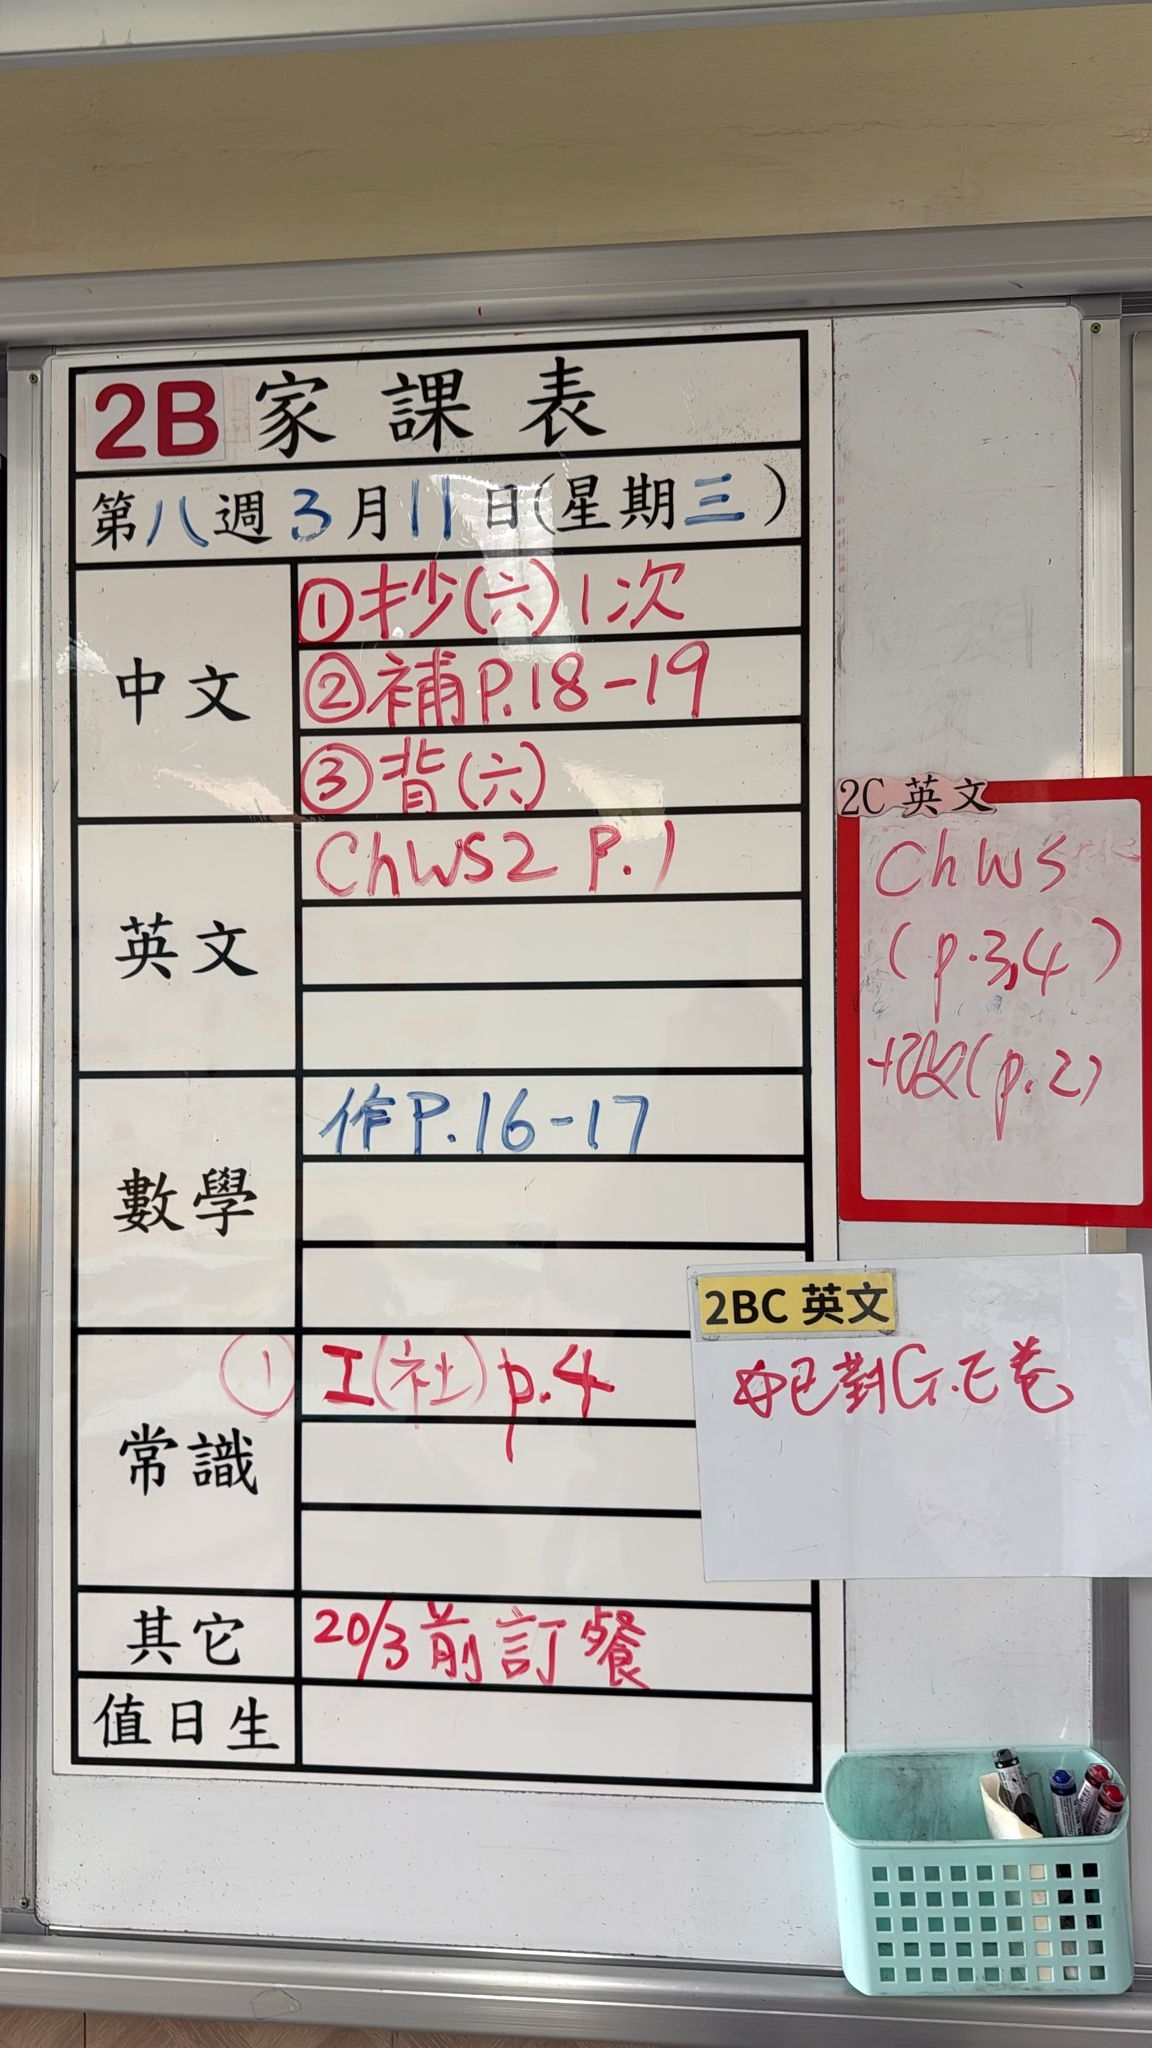 2B 家課表
第八週3月11日(星期三)
中文
①抄(六)1次
②補P.18-19
③背(六)
英文
ChWS2 P.1
數學
作P.16-17
常識
① 工(社)p.4
其它
20/3前訂餐
值日生
2C 英文
ChWS
(p.3,4)
+改(p.2)
2BC 英文
对G.E卷